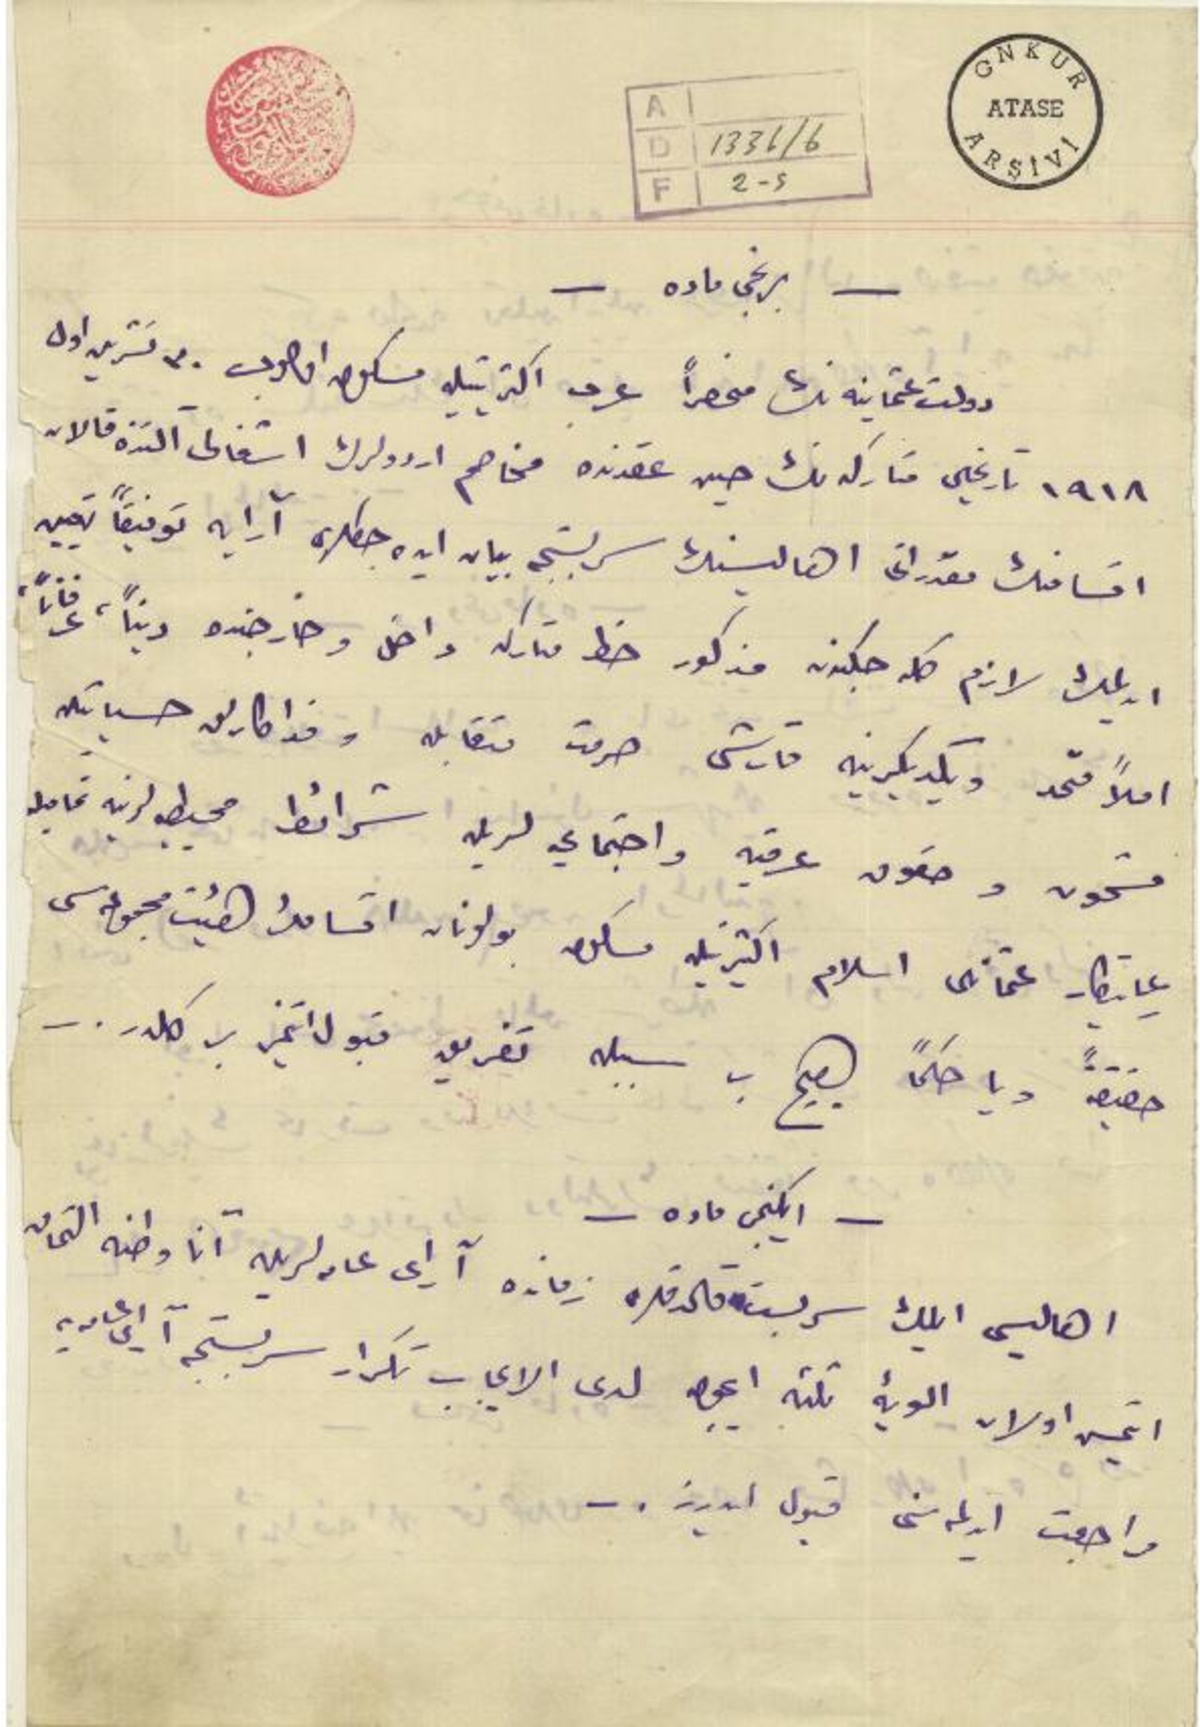 GNKUR
ATASE
ARŞİVİ
A
D 1336/6
F 2-5
— برنجی ماده —
دولت عثمانیه نك منحصراً عرب اكثریتیله مسكون اولوب ٣٠ تشرین اول
١٩١٨ تاریخلی متاركه نك حین عقدنده مخاصم اردولرك اشغالی آلتنده قالان
اقسامنك مقدراتی اهالیسنك سربستجه بیان ایده جكلری آرایه توفیقاً تعیین
ایدلمك لازم كله جكندن مذكور خط متاركه داخل و خارجنده دیناً، عرفاناً،
املاً متحد و یكدیكرینه قارشی حرمت متقابله و فداكارلق حسیاتیله
مشحون و حقوق عرقیه و اجتماعیه لریله شرائط محیطیه لرینه تمامیله
رعایتكار عثمانلی اسلام اكثریتیله مسكون بولونان اقسامك هیئت مجموعه سی
حقیقةً ویا حكماً هیچ بر سببله تفریق قبول ایتمز بر كلدر . —
— ایكنجی ماده —
اهالیسی ایلك سربست قالدقلری زمانده آرای عامه لریله آنا وطنه التحاق
ایتمش اولان الویهٔ ثلثه ایچون لدی الایجاب تكرار سربستجه آرای عامه یه
مراجعت ایدلمه سنی قبول ایدرز . —